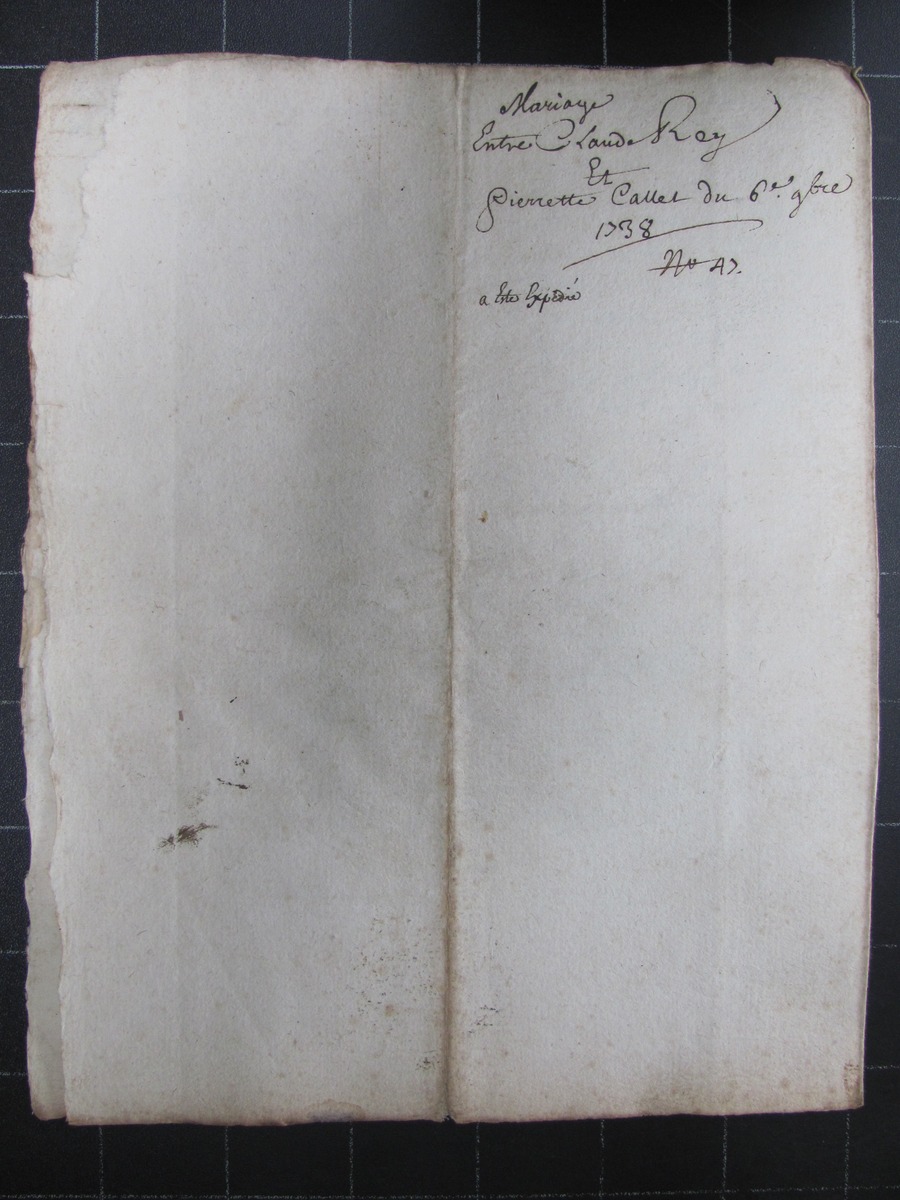 Mariage
Entre Claude Rey
Et
Pierrette Callet du 6e. 9bre
1738
No 47.
a Esté Expedié